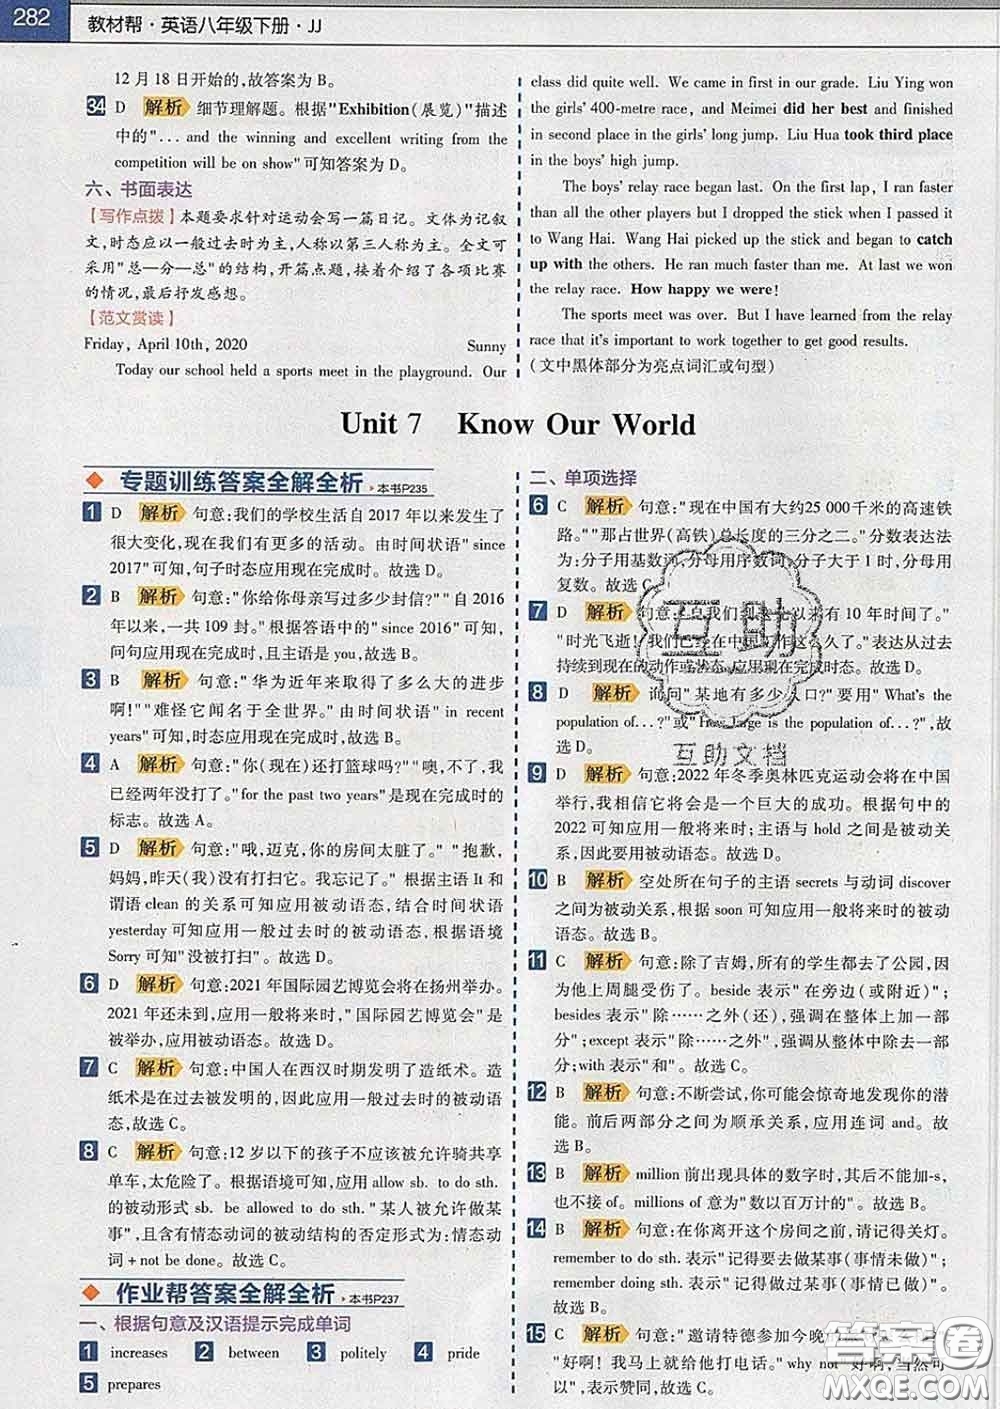 282
教材帮·英语八年级下册·JJ
12月18日开始的,故答案为B。
34 D 解析 细节理解题。根据"Exhibition(展览)"描述
中的"... and the winning and excellent writing from the
competition will be on show"可知答案为D。
六、书面表达
【写作点拨】本题要求针对运动会写一篇日记。文体为记叙
文,时态应以一般过去时为主,人称以第三人称为主。全文可
采用"总—分—总"的结构,开篇点题,接着介绍了各项比赛
的情况,最后抒发感想。
【范文赏读】
Friday, April 10th, 2020 Sunny
Today our school held a sports meet in the playground. Our
class did quite well. We came in first in our grade. Liu Ying won
the girls' 400-metre race, and Meimei did her best and finished
in second place in the girls' long jump. Liu Hua took third place
in the boys' high jump.
The boys' relay race began last. On the first lap, I ran faster
than all the other players but I dropped the stick when I passed it
to Wang Hai. Wang Hai picked up the stick and began to catch
up with the others. He ran much faster than me. At last we won
the relay race. How happy we were!
The sports meet was over. But I have learned from the relay
race that it's important to work together to get good results.
(文中黑体部分为亮点词汇或句型)
Unit 7 Know Our World
专题训练答案全解全析 ▸本书P235
1 D 解析 句意:我们的学校生活自2017年以来发生了
很大变化,现在我们有更多的活动。由时间状语"since
2017"可知,句子时态应用现在完成时。故选D。
2 B 解析 句意:"你给你母亲写过多少封信?"自2016
年以来,一共109封。"根据答语中的"since 2016"可知,
问句应用现在完成时,且主语是you,故选B。
3 B 解析 句意:"华为近年来取得了多么大的进步
啊!""难怪它闻名于全世界。"由时间状语"in recent
years"可知,时态应用现在完成时,故选B。
4 A 解析 句意:"你(现在)还打篮球吗?""噢,不了,我
已经两年没打了。"for the past two years"是现在完成时的
标志。故选A。
5 D 解析 句意:"哦,迈克,你的房间太脏了。""抱歉,
妈妈,昨天(我)没有打扫它。我忘记了。"根据主语It和
谓语clean的关系可知应用被动语态,结合时间状语
yesterday可知应用一般过去时的被动语态,根据语境
Sorry可知"没被打扫"。故选D。
6 D 解析 句意:2021年国际园艺博览会将在扬州举办。
2021年还未到,应用一般将来时,"国际园艺博览会"是
被举办,应用被动语态。故选D。
7 C 解析 句意:中国人在西汉时期发明了造纸术。造
纸术是在过去被发明的,因此应用一般过去时的被动语
态,故选C。
8 C 解析 句意:12岁以下的孩子不应该被允许骑共享
单车,太危险了。根据语境可知,应用allow sb. to do sth.
的被动形式sb. be allowed to do sth."某人被允许做某
事",且含有情态动词的被动结构的否定形式为:情态动
词+not be done。故选C。
作业帮答案全解全析 ▸本书P237
一、根据句意及汉语提示完成单词
1 increases 2 between 3 politely 4 pride
5 prepares
二、单项选择
6 C 解析 句意:"现在中国有大约25 000千米的高速铁
路。""那占世界(高铁)总长度的三分之二。"分数表达法
为:分子用基数词,分母用序数词,分子大于1时,分母用
复数。故选C
7 D 解析 句意:自我们到来以来有10年时间了。
"时光飞逝!我们已经在中国工作这么久了。"表达从过去
持续到现在的动作或状态,应用现在完成时态。故选D。
8 D 解析 询问"某地有多少人口?"要用"What's the
population of...?"或"How large is the population of...?",故
选D。
9 D 解析 句意:2022年冬季奥林匹克运动会将在中国
举行,我相信它将会是一个巨大的成功。根据句中的
2022可知应用一般将来时;主语与hold之间是被动关
系,因此要用被动语态。故选D。
10 B 解析 空处所在句子的主语secrets与动词discover
之间为被动关系,根据soon可知应用一般将来时的被动
语态。故选B。
11 C 解析 句意:除了吉姆,所有的学生都去了公园,因
为他上周腿受伤了。beside表示"在旁边(或附近)";
besides表示"除……之外(还),强调在整体上加一部
分";except表示"除……之外",强调从整体中除去一部
分;with表示"和"。故选C。
12 B 解析 句意:不断尝试,你可能会惊奇地发现你的潜
能。前后两部分内容为顺承关系,应用连词and。故选B。
13 B 解析 million前出现具体的数字时,其后不能加-s,
也不接of。millions of意为"数以百万计的"。故选B。
14 B 解析 句意:在你离开这个房间之前,请记得关灯。
remember to do sth.表示"记得要去做某事(事情未做)";
remember doing sth.表示"记得做过某事(事情已做)"。
故选B。
15 C 解析 句意:"邀请特德参加今晚
"好啊!我马上就去给他打电话。"why not"好啊,当然可
以",表示赞同,故选C。
互助
互助文档
答案圈
MXQE.COM